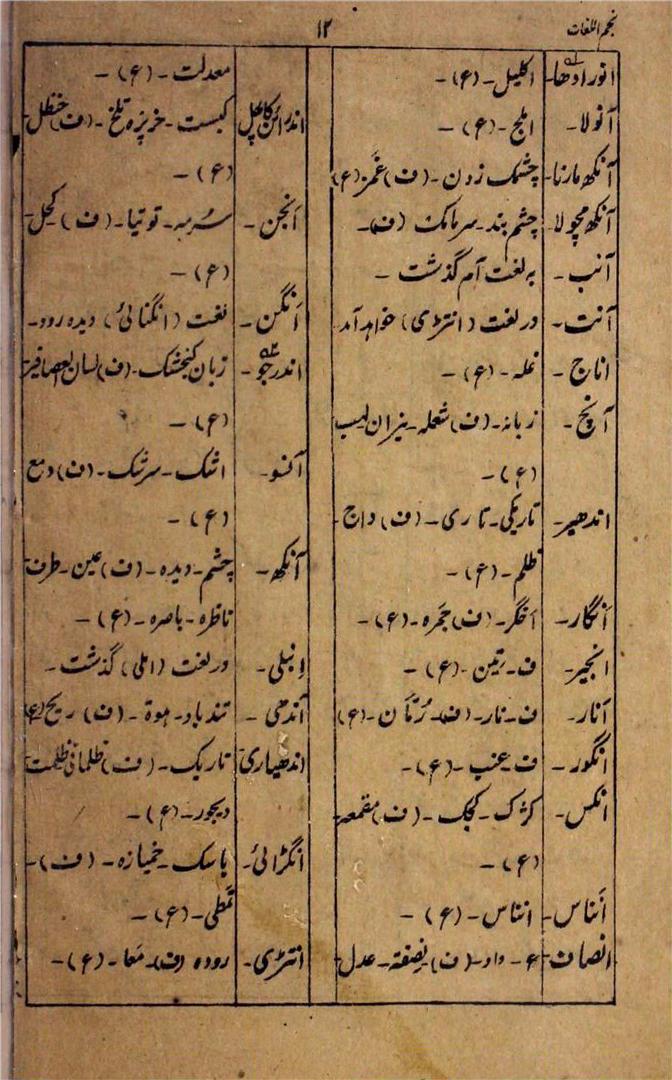 نجم اللغات
۱۲
انورادھا۔ اکلیل۔ (ع)۔
آنولا۔ املج۔ (ع)۔
آنکھ مارنا۔ چشمک زدن۔ (ف) غمز (ع)
آنکھ مچولا۔ چشم بند۔ سرمامک (ف)۔
آنب۔ بہ لغت آم گذشت۔
آنت۔ در لغت (انتڑی) خواہد آمد
اناج۔ غلہ۔ (ع)۔
آنچ۔ زبانہ۔ (ف) شعلہ۔ نیزان لہیب
(ع)۔
اندھیر۔ تاریکی۔ تاری۔ (ف) داج۔
ظلم۔ (ع)۔
انگار۔ اخگر۔ (ف) جمرہ۔ (ع)۔
انجیر۔ ف۔ تین۔ (ع)۔
انار۔ ف۔ نار۔ (ف)۔ رُمّان۔ (ع)
انگور۔ ف عنب۔ (ع)۔
انکس۔ کژک۔ کجک۔ (ف) مقمعہ
(ع)۔
اَننّاس۔ انناس۔ (ع)۔
انصاف۔ ع۔ داد۔ (ف) نصفتہ۔ عدل
معدلت۔ (ع)۔
اندرائن کا پھل کبست۔ خربزہ تلخ۔ (ف) حنظل
(ع)۔
اَنجن۔ سُرمہ۔ توتیا۔ (ف) کحل
(ع)۔
اَنگن۔ لغت (انگنائی) دیدہ رود۔
اندرجو۔ زبان کنجشک۔ (ف) لسان العصافیر
(ع)۔
آنسو۔ اشک۔ سرشک۔ (ف) دمع
(ع)۔
آنکھ۔ چشم۔ دیدہ۔ (ف) عین۔ طرف
ناظرہ۔ باصرہ۔ (ع)۔
اِنبلی۔ در لغت (املی) گذشت۔
آندھی۔ تندباد۔ ہوۃ۔ (ف) ریح (ع)
اندھیاری تاریک۔ (ف) ظلمانی ظلمت
دیجور۔ (ع)۔
انگڑائی۔ باسک۔ خمیازہ۔ (ف)۔
تمطی۔ (ع)۔
انتڑی۔ رودہ (ف)۔ مَعا۔ (ع)۔